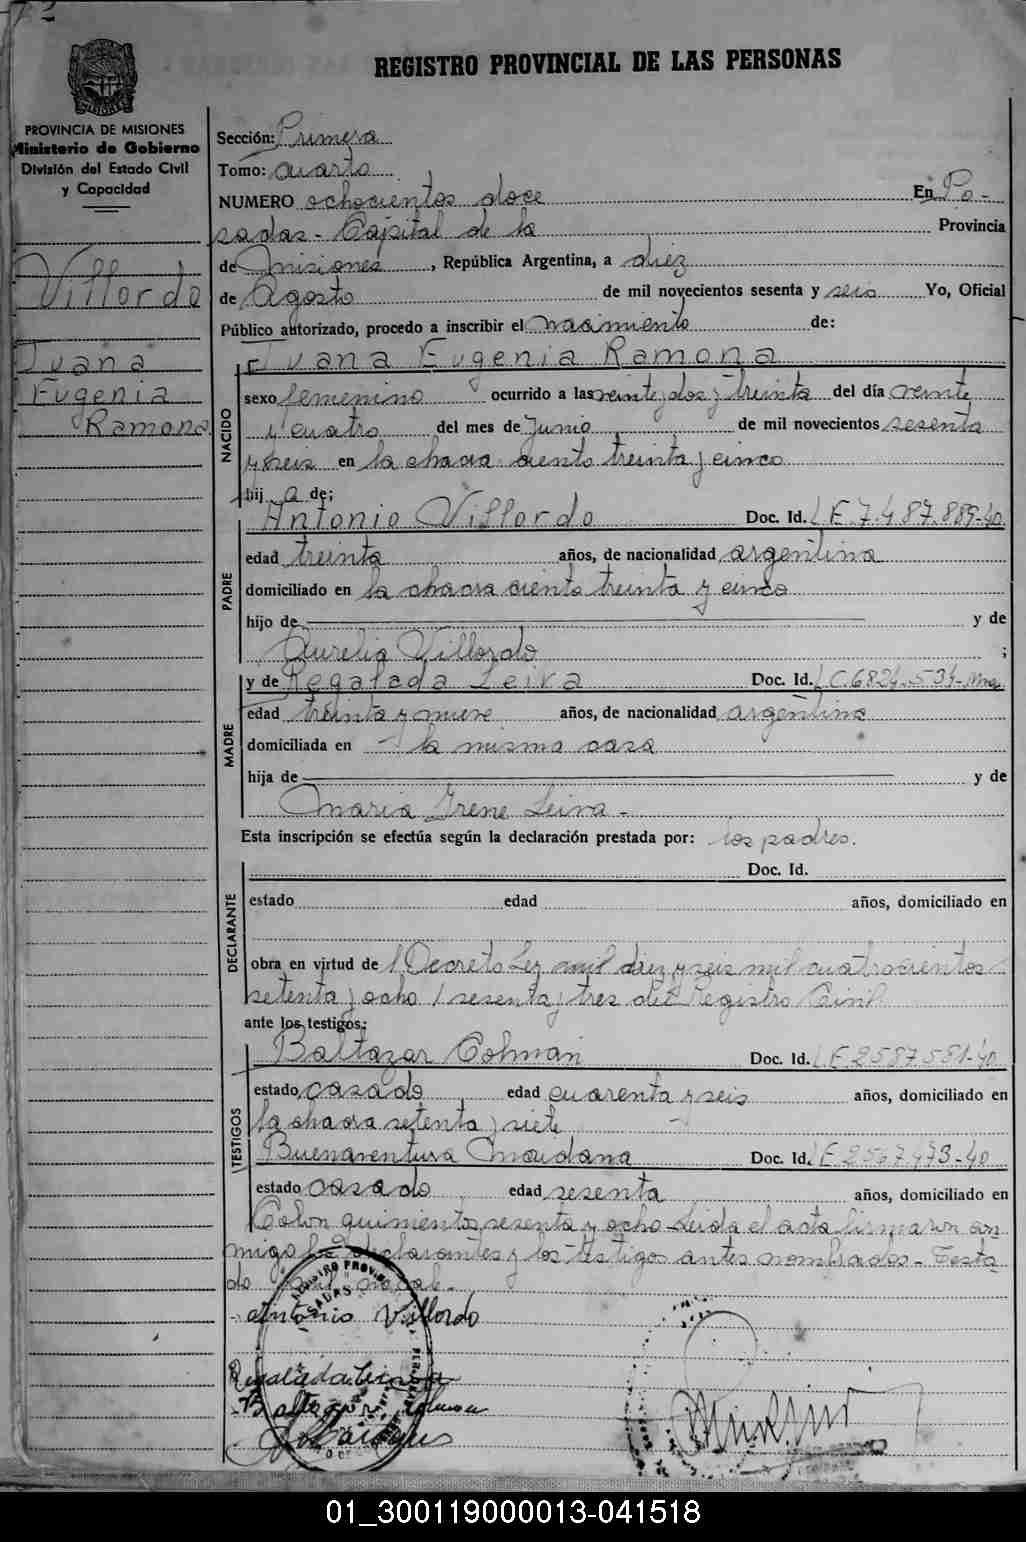 REGISTRO PROVINCIAL DE LAS PERSONAS
PROVINCIA DE MISIONES
Ministerio de Gobierno
División del Estado Civil
y Capacidad
Villordo
Juana
Eugenia
Ramona
Sección: Primera
Tomo: cuarto
NUMERO ochocientos doce En Po-
sadas - Capital de la Provincia
de Misiones, República Argentina, a diez
de Agosto de mil novecientos sesenta y seis Yo, Oficial
Público autorizado, procedo a inscribir el nacimiento de:
NACIDO
Juana Eugenia Ramona
sexo femenino ocurrido a las veinte y dos y treinta del día veinte
y cuatro del mes de Junio de mil novecientos sesenta
y seis en la chacra ciento treinta y cinco
hij a de;
PADRE
Antonio Villordo Doc. Id. L.E. 7.487.889-40
edad treinta años, de nacionalidad argentina
domiciliado en la chacra ciento treinta y cinco
hijo de y de
Aurelia Villordo ;
MADRE
y de Regalada Leiva Doc. Id. L.C. 6824.534-Mnes
edad treinta y nueve años, de nacionalidad argentina
domiciliada en - la misma casa
hija de y de
Maria Irene Leiva -
Esta inscripción se efectúa según la declaración prestada por: los padres.
DECLARANTE
Doc. Id.
estado edad años, domiciliado en
obra en virtud de l Decreto Ley mil diez y seis mil cuatrocientos
setenta y ocho / sesenta y tres del Registro Civil
ante los testigos:
TESTIGOS
Baltazar Colman Doc. Id. L.E. 2587581-40
estado casado edad cuarenta y seis años, domiciliado en
la chacra setenta y siete
Buenaventura Maidana Doc. Id. L.E. 2567473-40
estado casado edad sesenta años, domiciliado en
Colon quinientos sesenta y ocho - Leida el acta firmaron con
migo los declarantes y los testigos antes nombrados - Testa
do mil no vale -
Antonio Villordo
Regalada Leiva
Baltazar Colman
REGISTRO PROVIN
POSADAS
01_300119000013-041518